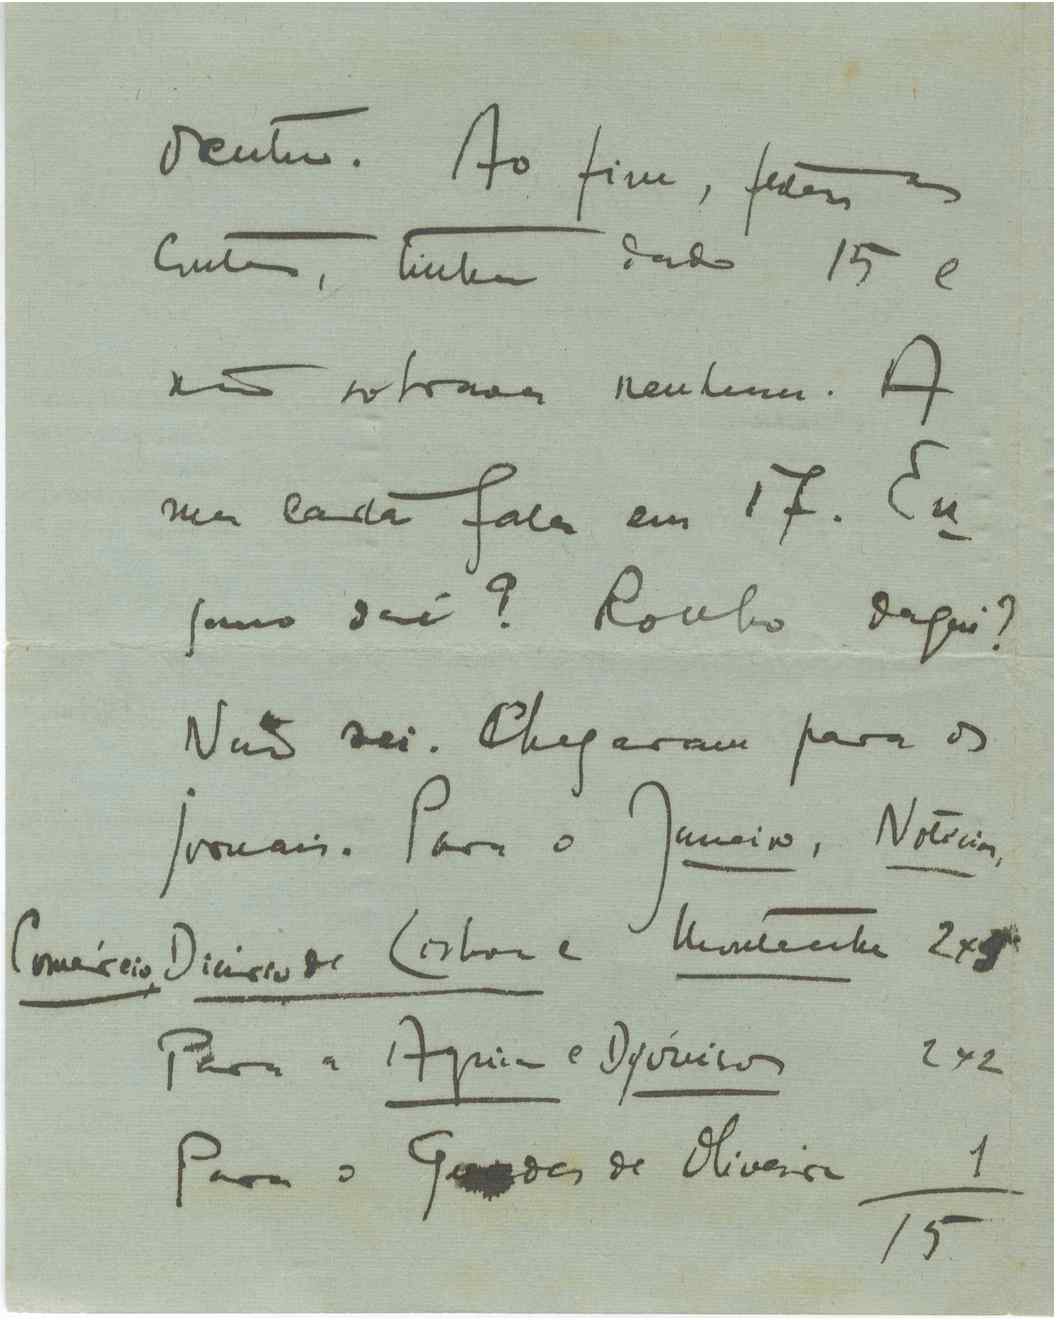 dentro. Ao fim, feitas as
contas, tinha dado 15 e
não sobrava nenhum. A
ma carta fala em 17. En
gano daí? Roubo daqui?
Não sei. Chegaram para os
jornais. Para o Janeiro, Notícias,
Comércio, Diário de Lisboa e Montanha 2x5
Para a Aguia e Dyónisos 2x2
Para o Guedes de Oliveira 1
15